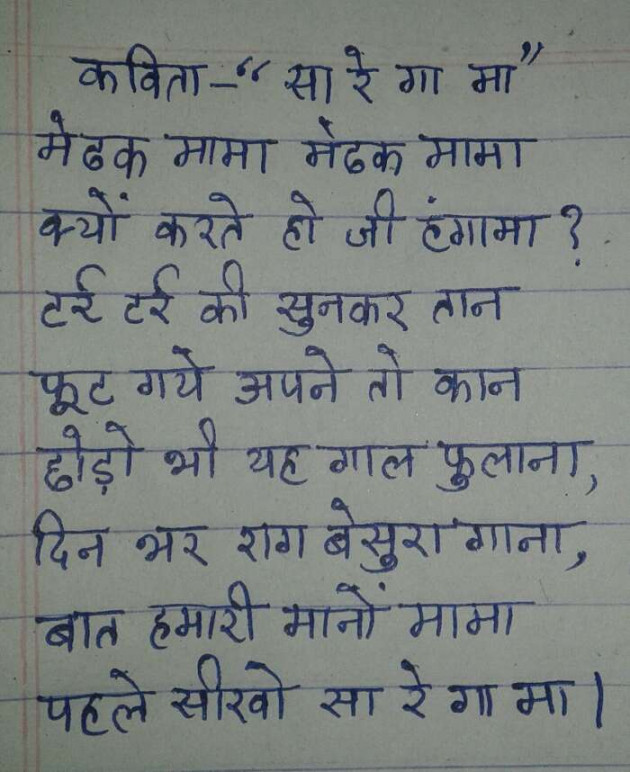 कविता-“सा रे गा मा”
मेढक मामा मेढक मामा
क्यों करते हो जी हंगामा ?
टर्र टर्र की सुनकर तान
फूट गये अपने तो कान
छोड़ो भी यह गाल फुलाना,
दिन भर राग बेसुरा गाना,
बात हमारी मानों मामा
पहले सीखो सा रे गा मा।